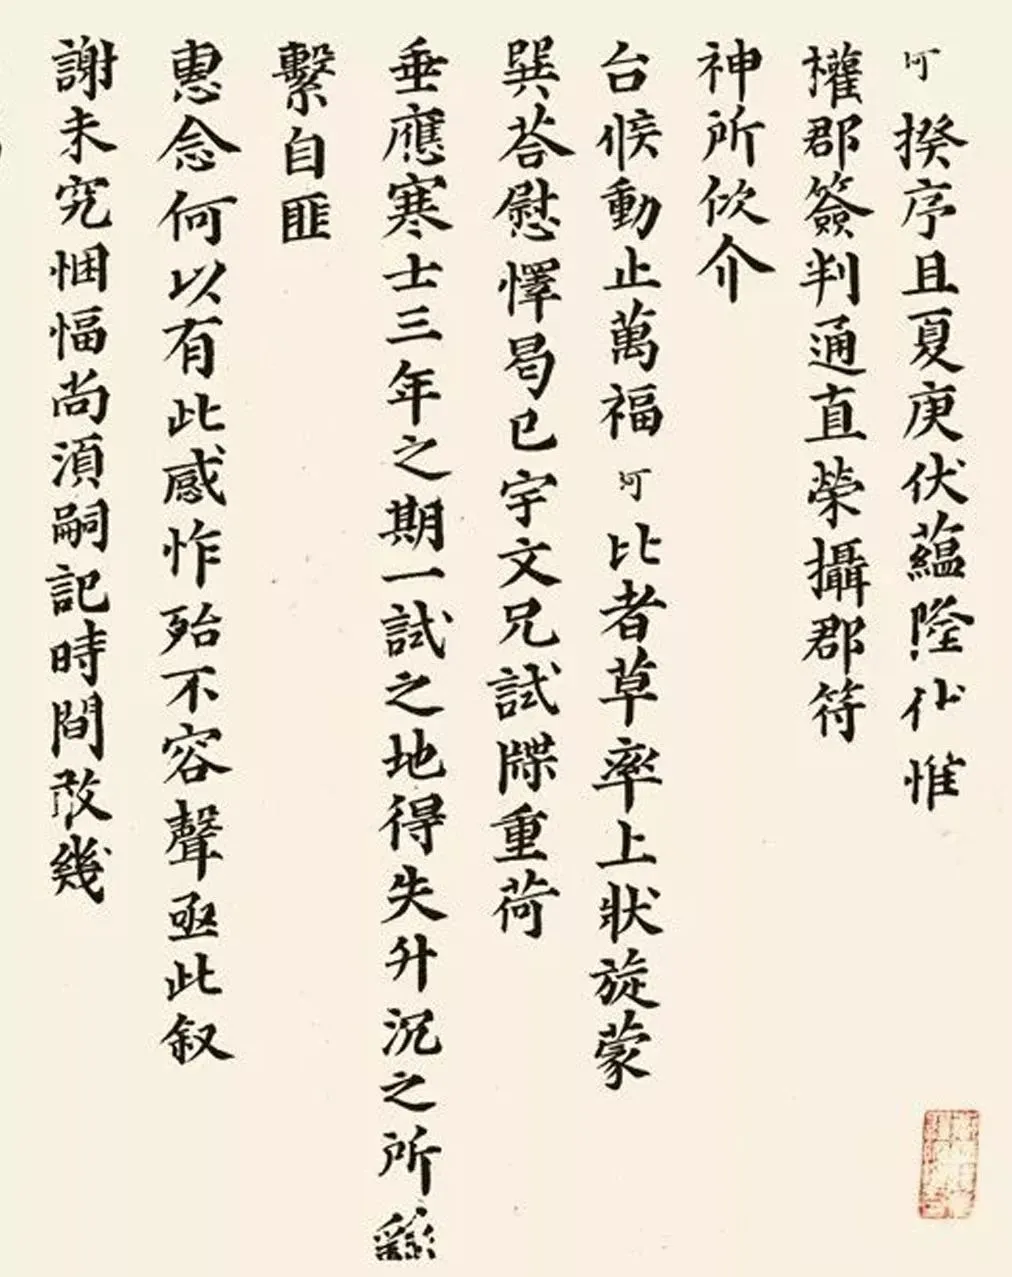 可揆序且夏庚伏蘊隆伏惟
權郡簽判通直榮攝郡符
神所依介
台候動止萬福可比者草率上狀旋蒙
巽荅慰懌曷已宇文兄試牒重荷
垂應寒士三年之期一試之地得失升沉之所繇
繫自匪
惠念何以有此感怍殆不容聲亟此叙
謝未究悃愊尚須嗣記時間敢幾